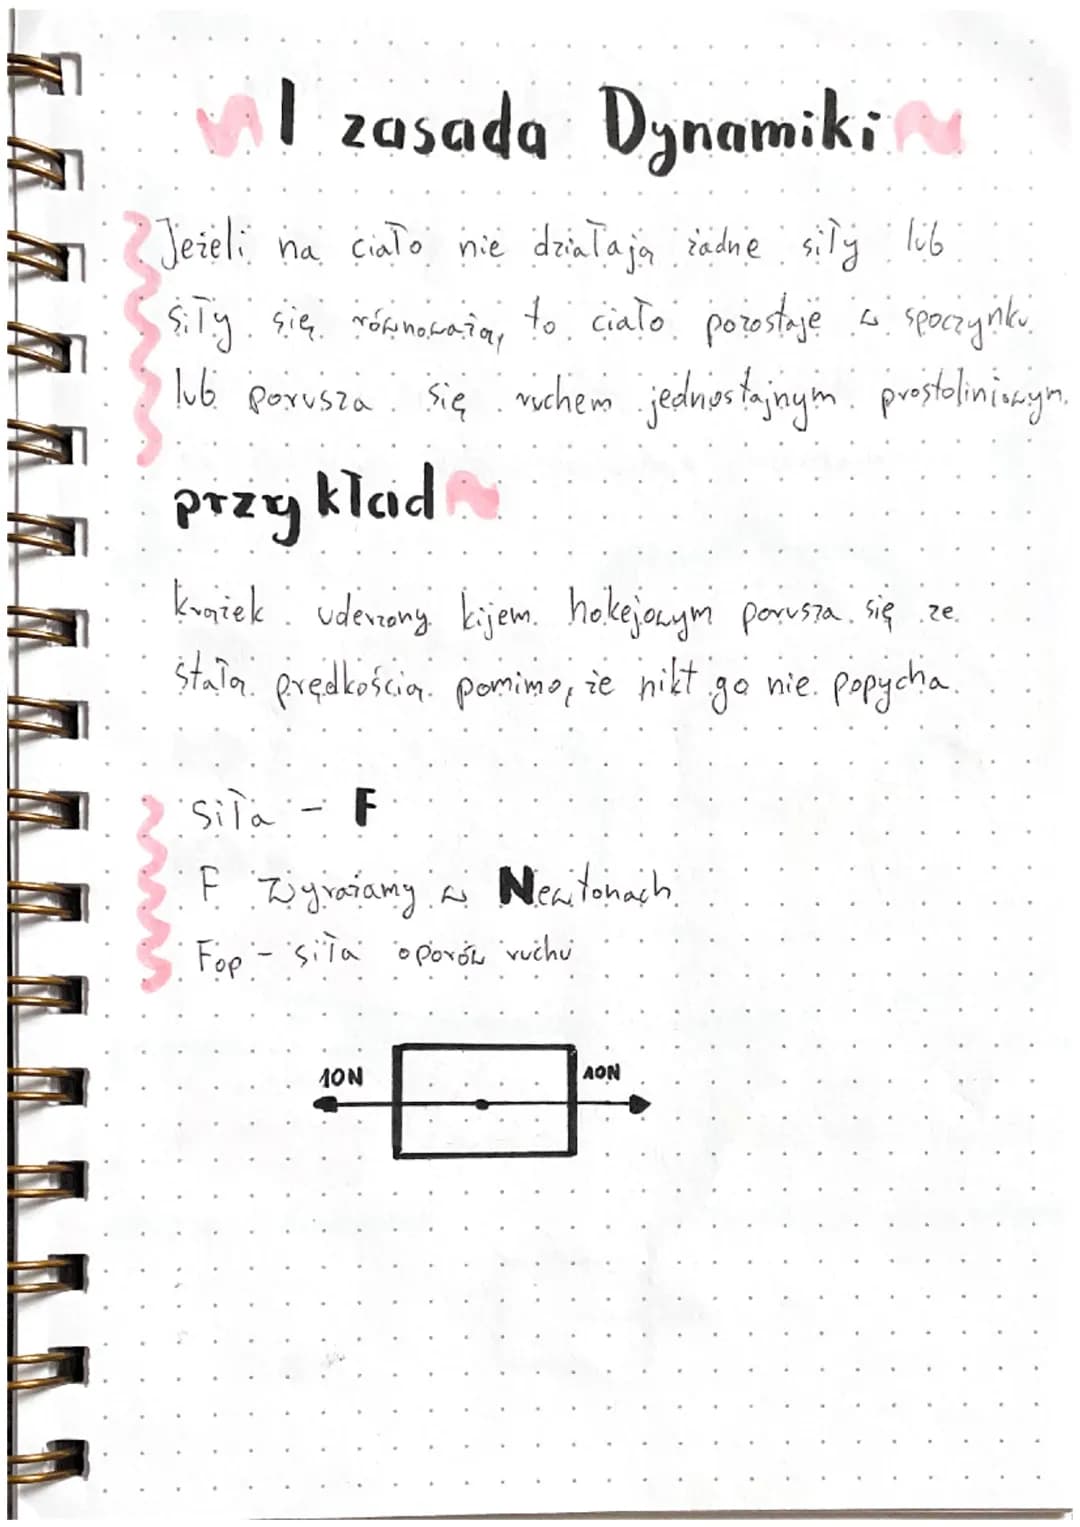 I zasada Dynamiki
Jeżeli na ciało nie działają żadne siły lub
siły się równoważą, to ciało pozostaje w spoczynku
lub porusza się ruchem jednostajnym prostoliniowym.
przykład
krążek uderzony kijem hokejowym porusza się ze
stałą prędkością pomimo, że nikt go nie popycha.
siła - F
F wyrażamy w Newtonach
Fop - siła oporów ruchu
10N 10N